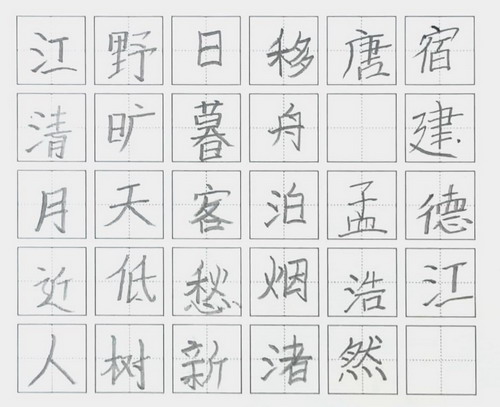 宿建德江
唐 孟浩然
移舟泊烟渚
日暮客愁新
野旷天低树
江清月近人